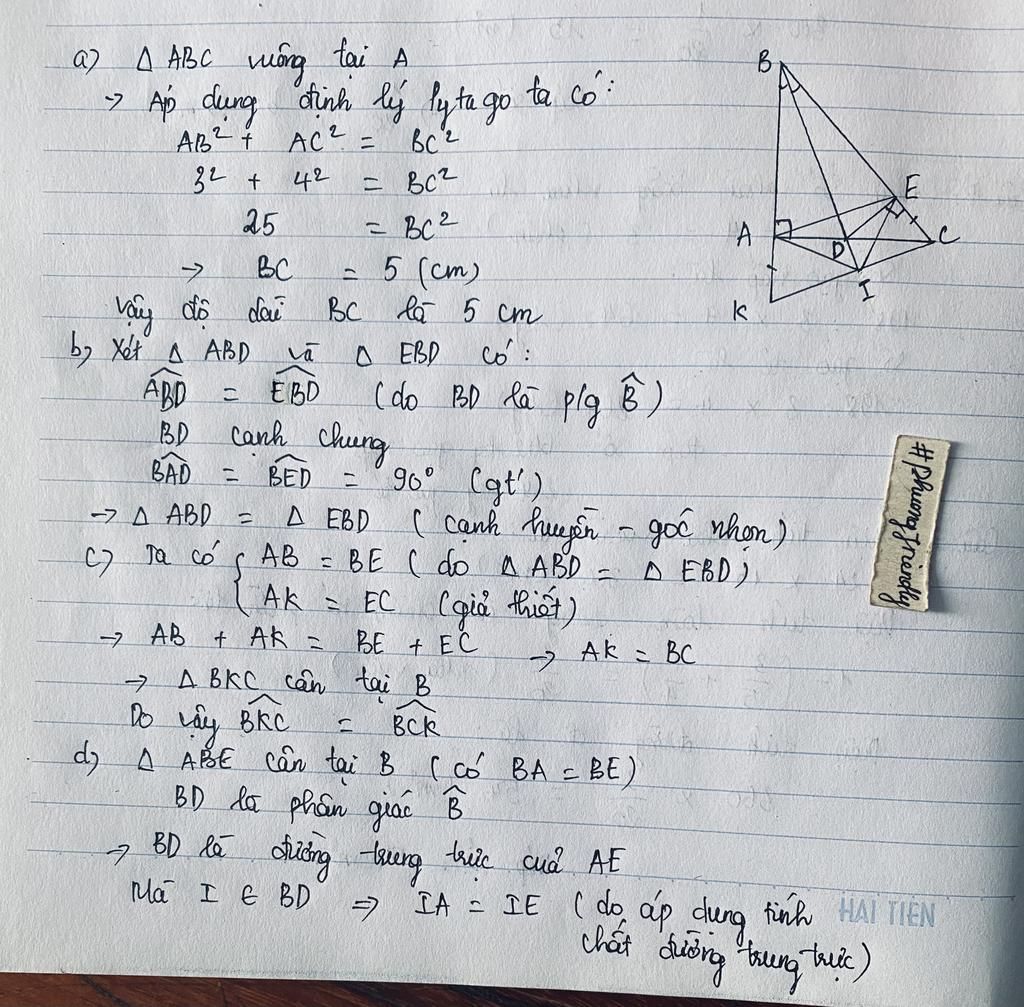 a) Δ ABC vuông tại A
→ Áp dụng định lý Pytago ta có:
AB² + AC² = BC²
3² + 4² = BC²
25 = BC²
→ BC = 5 (cm)
Vậy độ dài BC là 5 cm
b, Xét Δ ABD và Δ EBD có:
\widehat{ABD} = \widehat{EBD} (do BD là p/g \widehat{B})
BD cạnh chung
\widehat{BAD} = \widehat{BED} = 90° (gt)
→ Δ ABD = Δ EBD (cạnh huyền - góc nhọn)
c) Ta có { AB = BE (do Δ ABD = Δ EBD)
AK = EC (giả thiết)
→ AB + AK = BE + EC → AK = BC
→ Δ BKC cân tại B
Do vậy \widehat{BKC} = \widehat{BCK}
d, Δ ABE cân tại B (có BA = BE)
BD là phân giác \widehat{B}
→ BD là đường trung trực của AE
Mà I ∈ BD ⇒ IA = IE (do áp dụng tính
chất đường trung trực)
B
E
A
D
C
I
K
#phuongfriendly
HẢI TIẾN